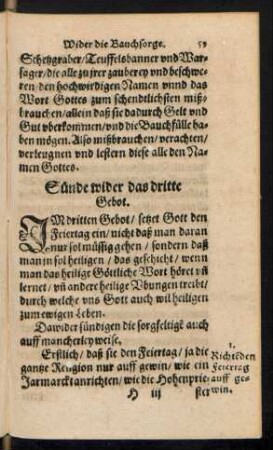 Wider die Bauchsorge. 59
Schetzgraber/Teuffelsbanner vnd War-
sager/die alle zu jrer zauberey vnd beschwe-
ren den hochwirdigen Namen vnnd das
Wort Gottes zum schendtlichsten miß-
brauchen/allein daß sie dadurch Gelt vnd
Gut vberkommen/vnd die Bauchfülle ha-
ben mögen. Also mißbrauchen/verachten/
verleugnen vnd lestern diese alle den Na-
men Gottes.
Sünde wider das dritte
Gebot.
IM dritten Gebot/ setzt Gott den
Feiertag ein/nicht daß man daran
nur sol müssig gehen / sondern daß
man jn sol heiligen / das geschicht/ wenn
man das heilige Göttliche Wort höret vñ
lernet/ vñ andere heilige Vbungen treibt/
durch welche vns Gott auch wil heiligen
zum ewigen Leben.
Dawider sündigen die sorgfeltigē auch
auff mancherley weise.
Erstlich/ daß sie den Feiertag/ ja die
gantze Religion nur auff gewin/ wie ein
Jarmarckt anrichten/ wie die Hohenprie-
1.
Richtē den
Feiertag
auff ge-
win.
H iij
ster